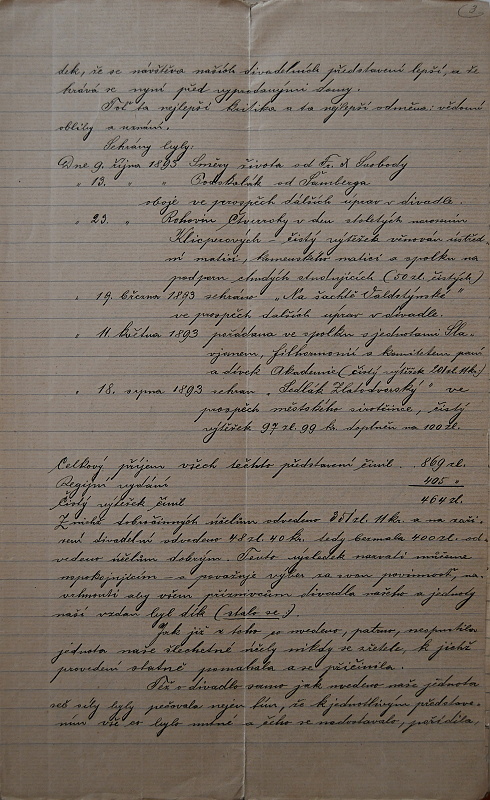 3
dek, že se návštěva našich divadelních představení lepší, a že
hrává se nyní před vyprodanými domy.
Toť ta nejlepší kritika a ta nejlepší odměna: vědomí
obliby a uznání.
Sehrány byly:
Dne 9. října 1893 Směry života od Fr. X Svobody
" 13. " " Podskalák od Šamberga
oboje ve prospěch dalších úprav v divadle.
" 23. " Rohovín Čtverrohý v den stoletých narozenin
Klicperových - čistý výtěžek věnován ústřed.
ní matici, Komenského matici a spolku na
podporu chudých studujících (50 zl. čistých)
" 19. března 1893 sehráno "Na šachtě Valdštýnské"
ve prospěch dalších úprav v divadle.
" 11. května 1893 pořádána ve spolku s jednotami Sla-
vjanem, filharmonií a komitétem paní
a dívek Akademie (čistý výtěžek 201 zl. 11 kr.)
" 18. srpna 1893 sehrán "Sedlák Zlatodvorský" ve
prospěch městského sirotčince, čistý
výtěžek 97 zl. 99 kr. doplněn na 100 zl.
Celkový příjem všech těchto představení činil . 869 zl.
Régijní vydání 405 "
Čistý výtěžek činil 464 zl.
Z nichž dobročinným účelům odvedeno 351 zl. 11 kr. a na zaří-
zení divadelní odvedeno 48 zl. 40 kr. tedy bezmála 400 zl. od-
vedeno účelům dobrým. Tento výsledek nazvati můžeme
uspokojujícím - a považuje výbor za svou povinnost, na-
vrhnouti aby všem příznivcům divadla našeho a jednoty
naší vzdán byl dík (stalo se).
Jak již z toho, co uvedeno, patrno, neopustila
jednota naše šlechetné účely nikdy se zřetele, k jichž
provedení statně pomáhala a se přičinila.
Též o divadlo samo jak uvedeno naše jednota
seč síly byly pečovala nejen tím, že k jednotlivým představe-
ním vše co bylo nutné a čeho se nedostávalo, pořídila,